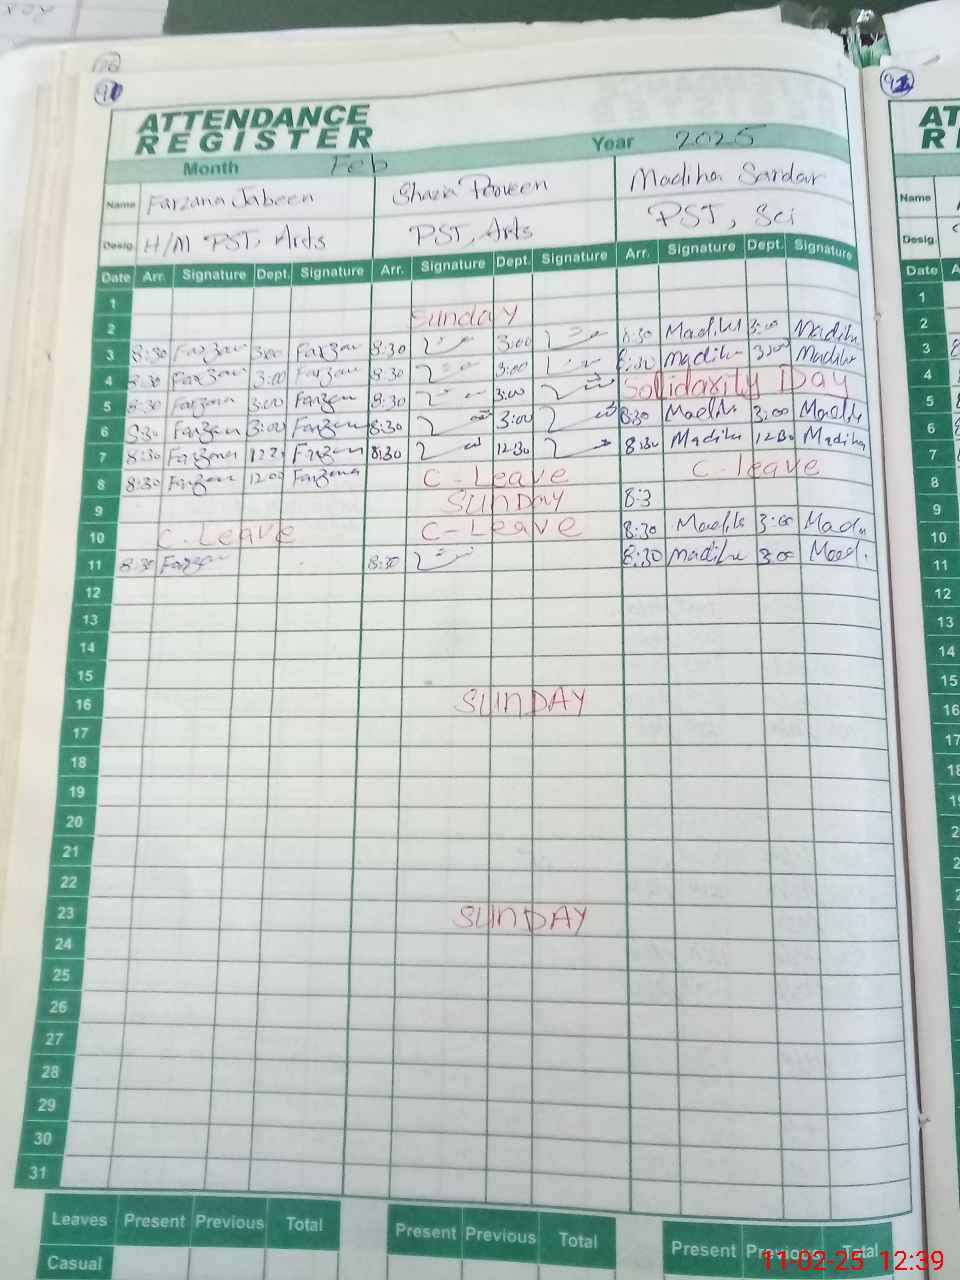 91
92
ATTENDANCE
REGISTER
Month Feb Year 2025
Name Farzana Jabeen Shazia Parveen Madiha Sardar
Desig. H/M PST, Arts PST, Arts PST, Sci
Date Arr. Signature Dept. Signature Arr. Signature Dept. Signature Arr. Signature Dept. Signature
1
2 Sunday
3 8:30 Farzan 3:00 Farzan 8:30 3:00 8:30 Madiha 3:00 Madiha
4 8:30 Farzan 3:00 Farzan 8:30 3:00 8:30 madiha 3:00 Madiha
5 8:30 Farzana 3:00 Farzan 8:30 3:00 Solidarity Day
6 8:30 Farzan 3:00 Farzan 8:30 3:00 8:30 Madiha 3:00 Madiha
7 8:30 Farzana Farzana 8:30 12:30 8:30 Madiha 12:30 Madiha
8 8:30 Farzan 12:00 Farzana C-Leave C-leave
9 SUNDAY 8:3
10 C-Leave C-Leave 8:30 Madiha 3:00 Madi
11 8:30 Farzan 8:30 8:30 madiha 3:00
12
13
14
15
16 SUNDAY
17
18
19
20
21
22
23 SUNDAY
24
25
26
27
28
29
30
31
Leaves Present Previous Total Present Previous Total Present Previous Total
Casual
AT
RE
Name
Desig.
Date A
1
2
3
4
5
6
7
8
9
10
11
12
13
14
15
16
17
18
11-02-25 12:39